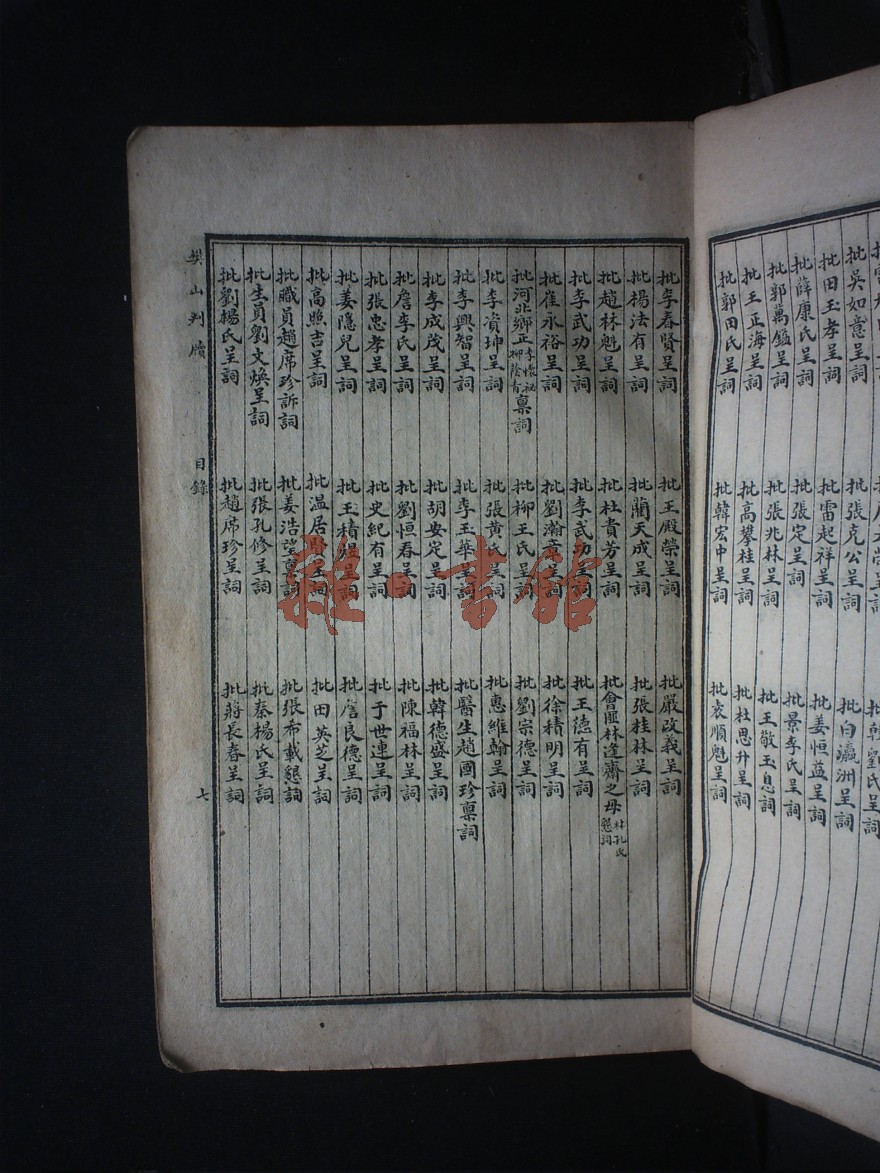 批吳如意呈詞 批張克公呈詞 批白瀛洲呈詞
批田玉孝呈詞 批雷起祥呈詞 批姜恒益呈詞
批薛康氏呈詞 批張定呈詞 批景李氏呈詞
批郭萬鎰呈詞 批張兆林呈詞 批王敬玉息詞
批王正海呈詞 批高攀桂呈詞 批杜思升呈詞
批郭田氏呈詞 批韓宏中呈詞 批袁順魁呈詞
批李春賢呈詞 批王殿榮呈詞 批嚴改義呈詞
批楊法有呈詞 批藺天成呈詞 批張桂林呈詞
批趙林魁呈詞 批杜貴芳呈詞 批會匪林逢齋之母林孔氏懇詞
批李武功呈詞 批李武功呈詞 批王德有呈詞
批崔永裕呈詞 批劉瀚章呈詞 批徐積明呈詞
批河北鄉正李 柳蔭 稟詞 批柳王氏呈詞 批劉宗德呈詞
批李資坤呈詞 批張黄氏呈詞 批惠維翰呈詞
批李興智呈詞 批李玉華呈詞 批醫生趙國珍稟詞
批李成茂呈詞 批胡安定呈詞 批韓德盛呈詞
批詹李氏呈詞 批劉恒春呈詞 批陳福林呈詞
批張忠孝呈詞 批史紀有呈詞 批于世連呈詞
批姜隱兒呈詞 批王積 呈詞 批詹良德呈詞
批高照吉呈詞 批温居 呈詞 批田英芝呈詞
批職員趙席珍訴詞 批姜浩望稟詞 批張希載懇詞
批生員劉文煥呈詞 批張孔修呈詞 批秦楊氏呈詞
批劉楊氏呈詞 批趙席珍呈詞 批蔣長春呈詞
樊山判牘 目錄 七
雜·書館